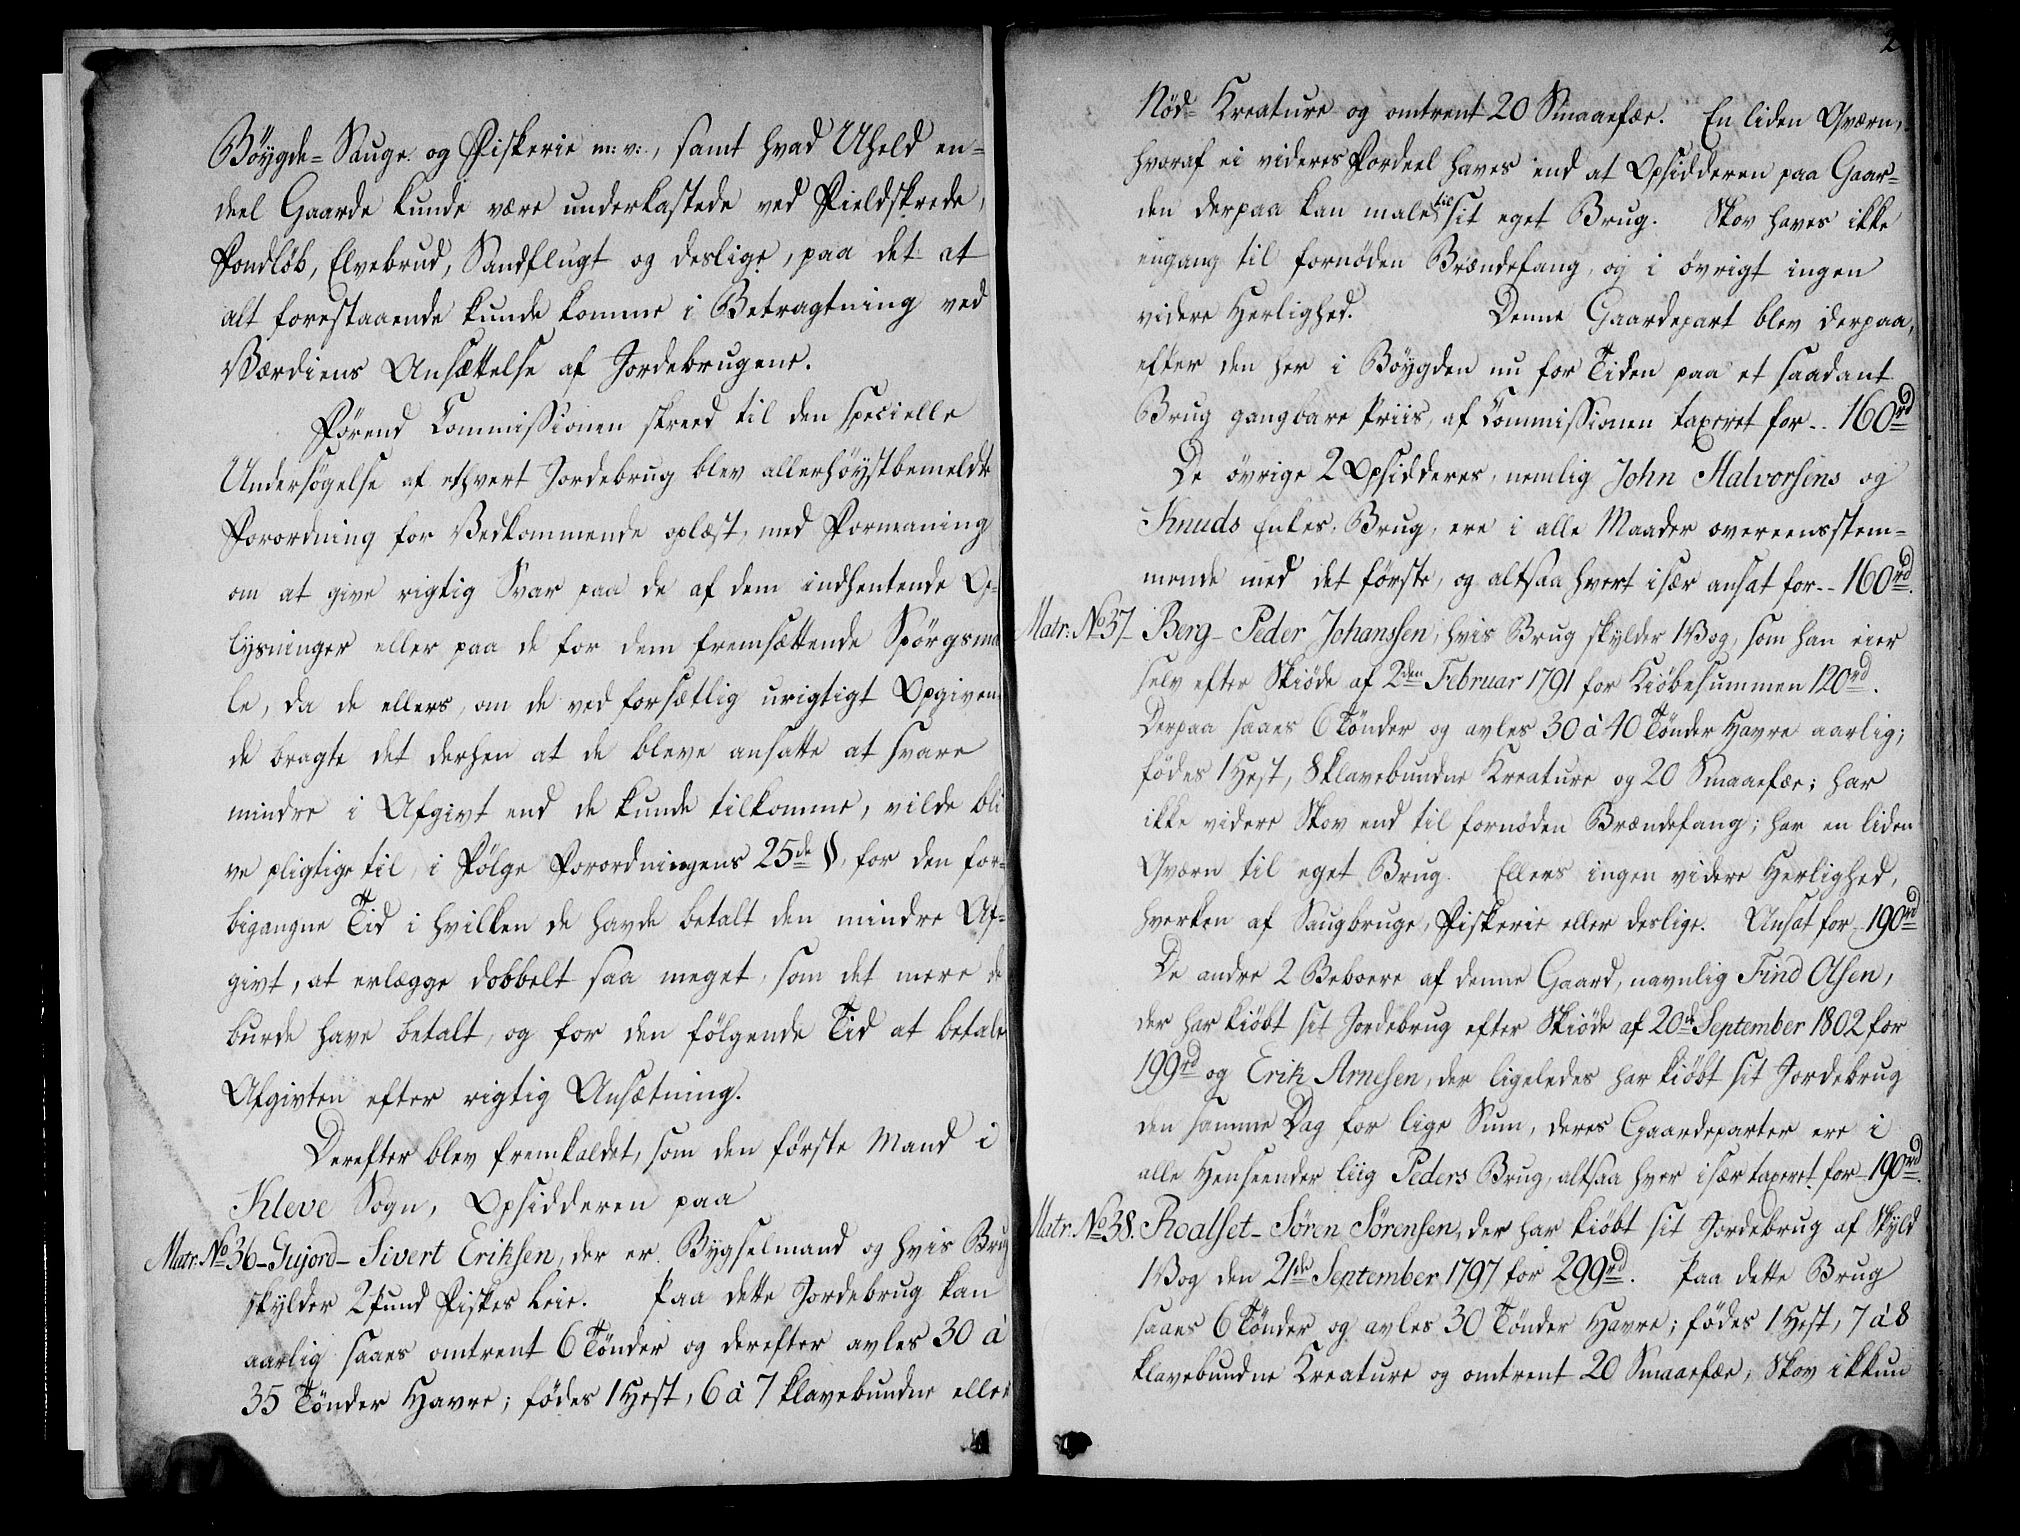 Böygde- Sauge og Fiskerie m: v:, samt hvad Uheld en-
deel Gaarde kunde være underkastede ved Fieldskrede,
Vandløb, Elvebrud, Sandflugt og deslige, paa det at
alt forestaaende kunde komme i Betragtning ved
Værdiens Ansættelse af Jordebrugene.
Førend Commissionen skreed til den specielle
Undersøgelse af ethvert Jordebrug blev allerhöystbemeldte
Forordning for Vedkommende oplæst, med Formaning
om at give rigtig Svar paa de af dem indhentende Op-
lysninger eller paa de for dem fremsættende Spörgsmaa
le, da de ellers, om de ved forsætlig urigtigt Opgiven-
de bragte det derhen at de bleve ansatte at svare
mindre i Afgivt end de kunde tilkomme, vilde bli
ve pligtige til, i Følge Forordningens 25de §, for den for-
bigangne Tid i hvilken de havde betalt den mindre Af-
givt, at erlægge dobbelt saa meget, som det mere de
burde have betalt, og for den følgende Tid at betale
Afgivten efter rigtig Ansætning.
Derefter blev fremkaldet, som den förste Mand i
Kleve Sogn, Opsidderen paa
Matr: No 36 - Gujord - Sivert Eriksen, der er Bygselmand og hvis Brug
skylder 2 Pund Fiskes Leie. Paa dette Jordebrug kan
aarlig saaes omtrent 6 Tönder og derefter avles 30 à
35 Tönder Havre; fødes 1 Hest, 6 à 7 klavebundne eller
2
Nöd- Kreature og omtrent 20 Smaaefæe. En liden Qværn,
hvoraf ei videre Fordeel haves end at Opsidderen paa Gaar-
den derpaa kan male til sit eget Brug. Skov haves ikke
engang til fornöden Brændefang, og i övrigt ingen
videre Herlighed. Denne Gaardepart blev derpaa,
efter den her i Böygden nu for Tiden paa et saadant
Brug gangbare Priis, af Commissionen taxeret for - - 160rd
De övrige 2 Opsidderes, nemlig John Halvorsens og
Knuds Enkes, Brug, ere i alle Maader overeensstem-
mende med det förste, og altsaa hvert især ansat for - - 160rd.
Matr: No 37 - Berg - Peder Johanssen, hvis Brug skylder 1 Vog, som han eier
selv efter Skiöde af 2den Februar 1791 for Kiöbesummen 120rd.
Derpaa saaes 6 Tönder og avles 30 à 40 Tönder Havre aarlig;
födes 1 Hest, 8 klavebundne Kreature og 20 Smaaefæe; har
ikke videre Skov end til fornöden Brændefang; har en liden
Qværn til eget Brug. Ellers ingen videre Herlighed,
hverken af Saugbruge, Fiskerie eller deslige. Ansat for - 190rd
De andre 2 Beboere af denne Gaard, navnlig Find Olsen,
der har kiöbt sit Jordebrug efter Skiöde af 20de September 1802 for
199rd og Erik Arnesen, der ligeledes har kiöbt sit Jordebrug
den samme Dag for lige Sum, deres Gaardeparter ere i
alle Henseender liig Peders Brug, altsaa hver især taxeret for - 190rd.
Matr: No 38. Roalset - Sören Sörensen, der har kiöbt sit Jordebrug af Skyld
1 Vog den 21de September 1797 for 299rd. Paa dette Brug
saaes 6 Tönder og avles 30 Tönder Havre; födes 1 Hest, 7 à 8
klavebundne Kreature og omtrent 20 Smaaefæe; Skov ikkun